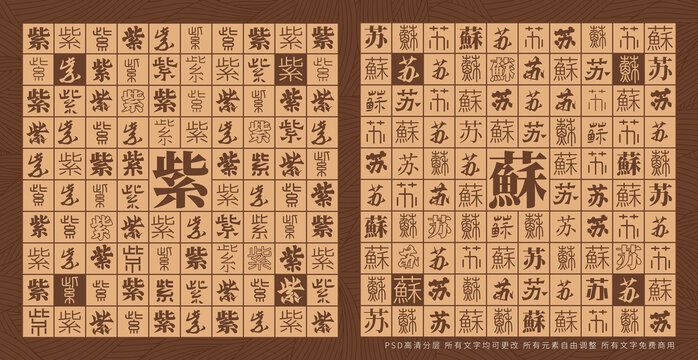 紫紫紫紫紫紫紫紫紫紫
紫紫紫紫紫紫紫紫紫紫
紫紫紫紫紫紫紫紫紫紫
紫紫紫紫紫紫紫紫紫紫
紫紫紫紫紫紫紫紫
紫
紫紫紫紫紫紫紫紫
紫紫紫紫紫紫紫紫紫紫
紫紫紫紫紫紫紫紫紫紫
紫紫紫紫紫紫紫紫紫紫
紫紫紫紫紫紫紫紫紫紫
苏蘇苏蘇苏苏苏苏蘇苏
蘇苏苏蘇蘇苏蘇蘇蘇苏
蘇苏苏蘇苏蘇苏苏苏蘇
苏蘇苏苏苏蘇苏苏蘇苏
苏蘇苏蘇苏苏蘇苏
蘇
苏苏蘇苏苏蘇苏蘇
蘇蘇苏苏蘇苏苏蘇苏蘇
蘇苏蘇苏苏苏蘇苏苏苏
蘇蘇苏蘇苏蘇苏苏苏蘇
苏蘇苏蘇苏苏蘇苏蘇苏
PSD高清分层 所有文字均可更改 所有元素自由调整 所有文字免费商用